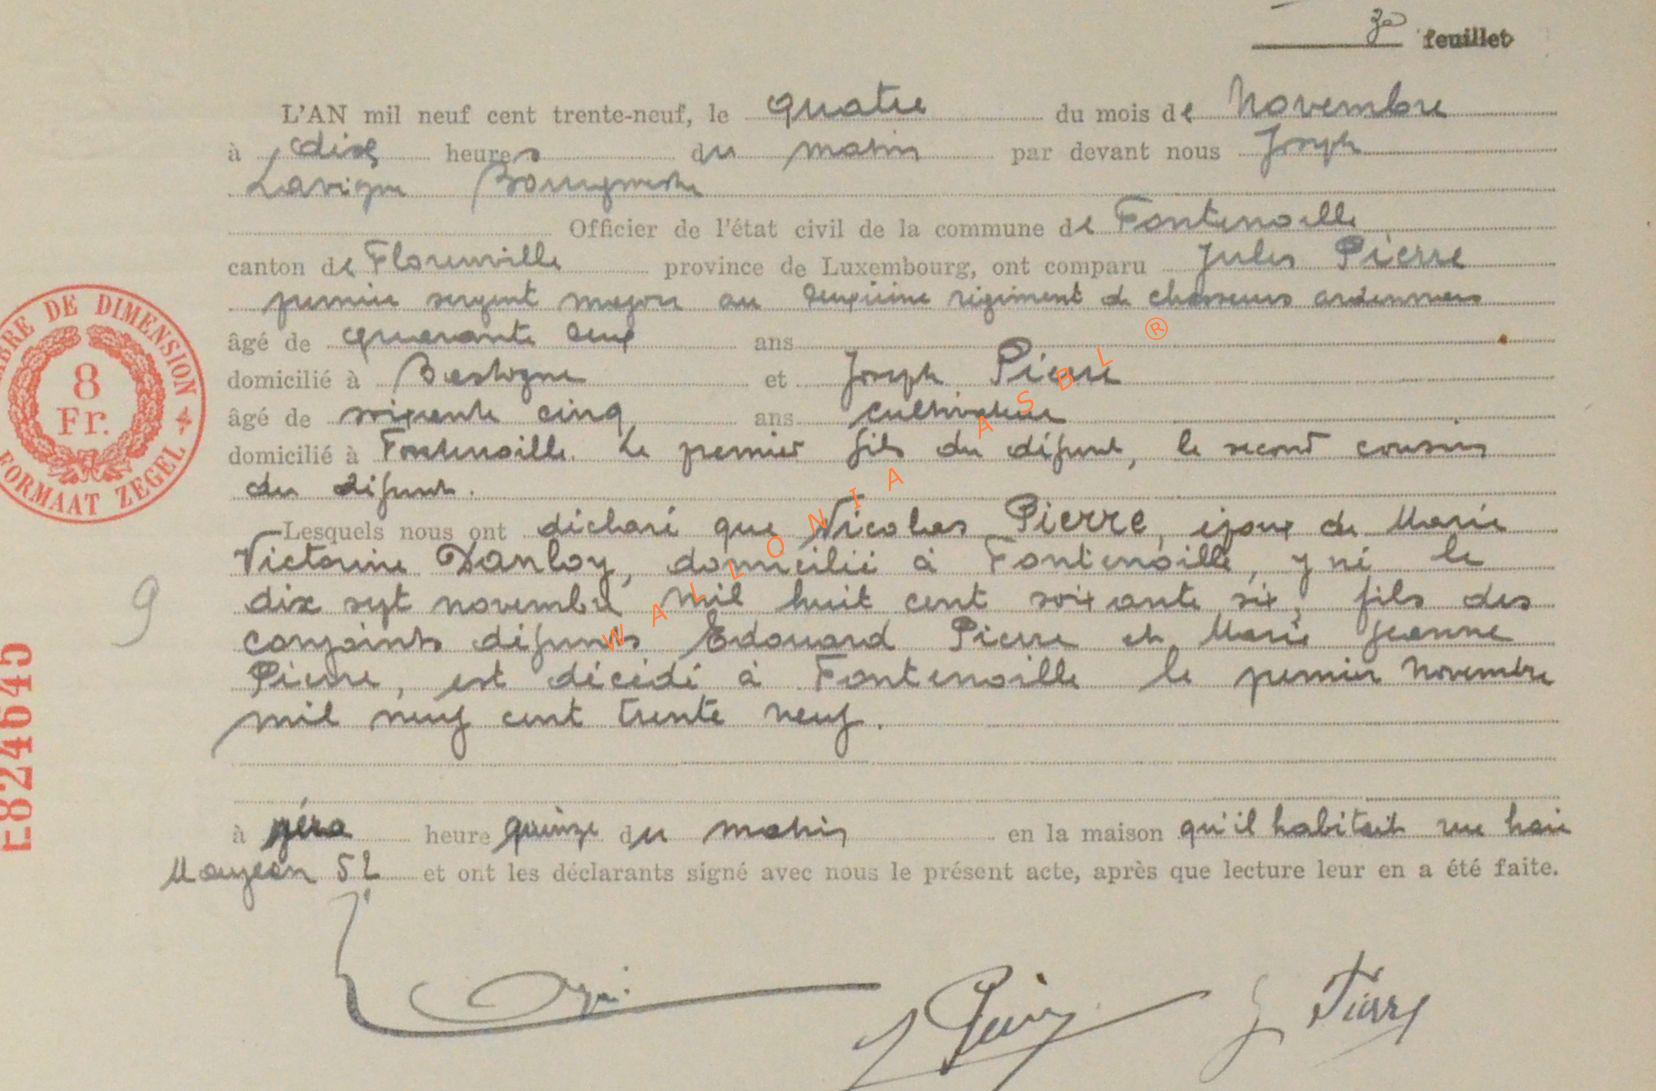 3e feuillet
L'AN mil neuf cent trente-neuf, le quatre du mois de Novembre
à dix heures du matin par devant nous Joseph
Lavigne Bourgmestre
Officier de l'état civil de la commune de Fontenoille
canton de Florenville province de Luxembourg, ont comparu Jules Pierre
premier sergent major au deuxième régiment de chasseurs ardennais
âgé de quarante deux ans
domicilié à Bastogne et Joseph Pierre
âgé de soixante cinq ans cultivateur
domicilié à Fontenoille. Le premier fils du défunt, le second cousin
du défunt.
Lesquels nous ont déclaré que Nicolas Pierre, époux de Marie
Victorine Danloy, domicilié à Fontenoille, y né le
dix sept novembre mil huit cent soixante six, fils des
conjoints défunts Edouard Pierre et Marie Jeanne
Pierre, est décédé à Fontenoille le premier novembre
mil neuf cent trente neuf.
9
à zéro heure quinze du matin en la maison qu'il habitait rue haie
Maujean 52 et ont les déclarants signé avec nous le présent acte, après que lecture leur en a été faite.
J Pierre
TIMBRE DE DIMENSION
8
Fr.
FORMAAT ZEGEL
E824645
WALLONIA ASBL ®